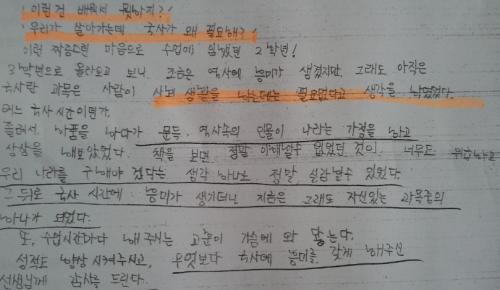 '이런걸 배워서 뭣하지?'
'우리가 살아가는데 국사가 왜 필요해?'
이런 마음으로 수업에 임했던 2학년!
3학년으로 올라오고 보니, 조금은 역사에 흥미가 생겼지만, 그래도 아직은
국사란 과목은 사람이 사회 생활을 하는데는 필요없다고 생각을 하였었다.
어느 국사 시간이던가.
졸려서, 하품을 하다가 문득, 역사속의 인물이 나라는 가정을 하고
상상을 해보았었다. 책을 보면 정말 이해할수 없었던 것이, 너무도
우리 나라를 구해야 겠다는 생각 하나로 정말 실감할수 있었다.
그 뒤로 국사 시간에 흥미가 생기더니 지금은 그래도 자신있는 과목중의
하나가 되었다.
또, 수업시간마다 해 주시는 교훈이 가슴에 와 닿는다.
성적도 향상 시켜주시고, 무엇보다 국사에 흥미를 갖게 해주신
선생님께 감사를 드린다.